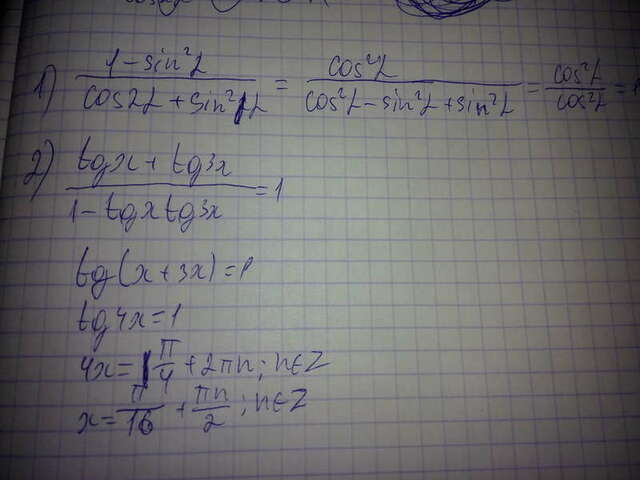 1) (1-sin²α)/(cos2α+sin²α) = cos²α/(cos²α-sin²α+sin²α) = cos²α/cos²α = 1
2) (tgx+tg3x)/(1-tgxtg3x) = 1
tg(x+3x)=1
tg4x=1
4x=π/4+2πn; n∈Z
x=π/16+πn/2; n∈Z